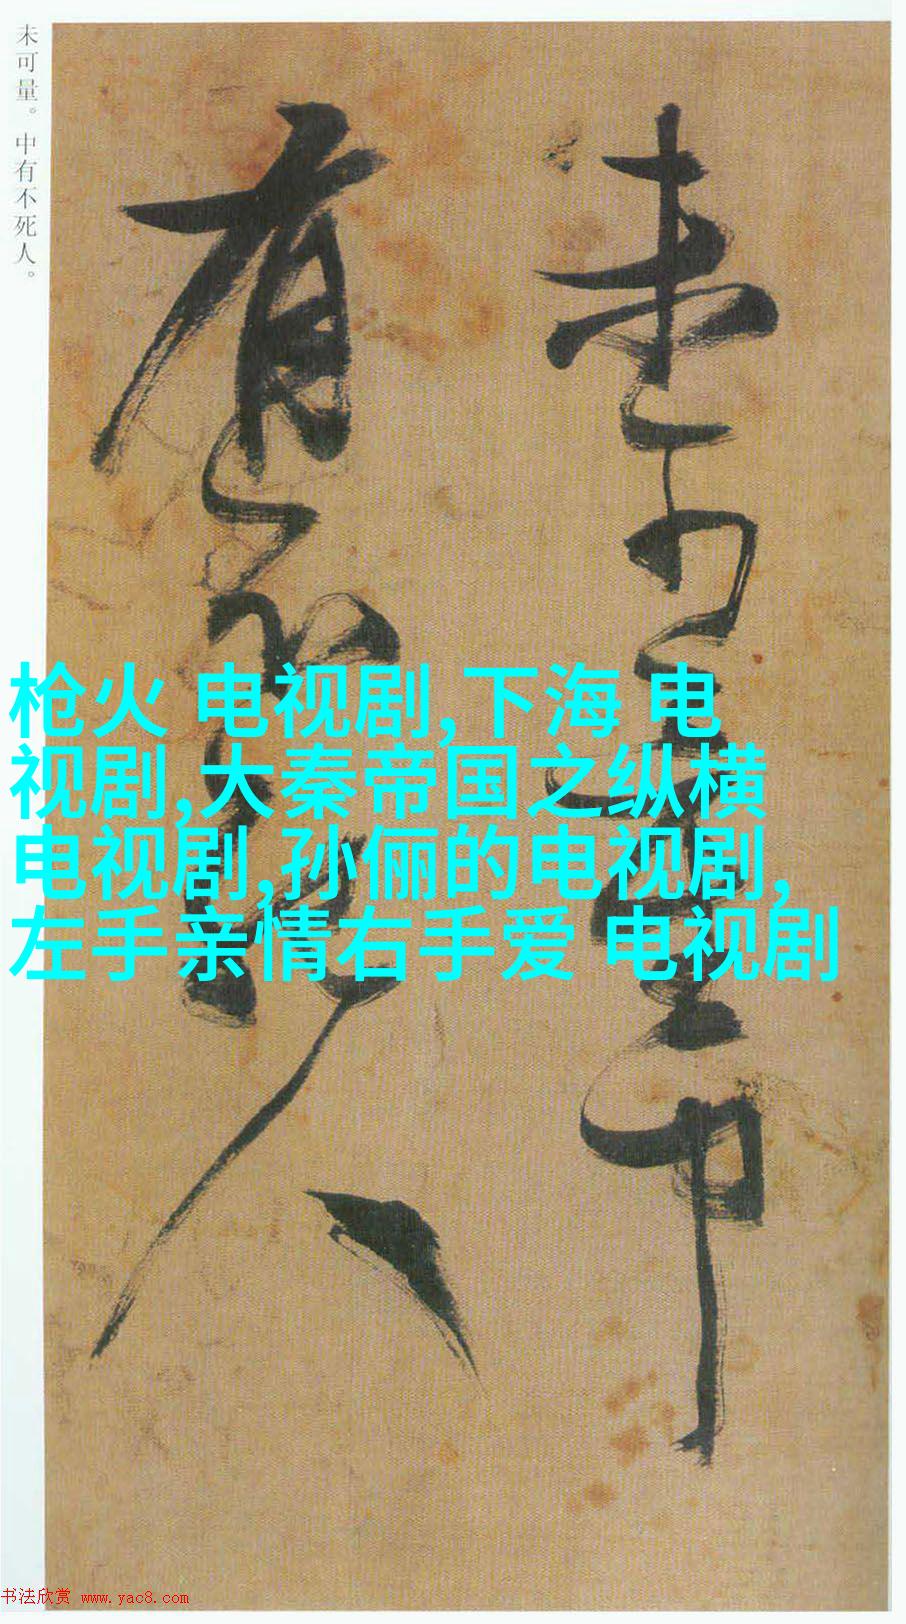 未可量。中有不死人。
未可量中
有不死人
枪火 电视剧,下海 电
视剧,大秦帝国之纵横
电视剧,孙俪的电视剧,
左手亲情右手爱 电视剧
书法欣赏 www.yac8.com